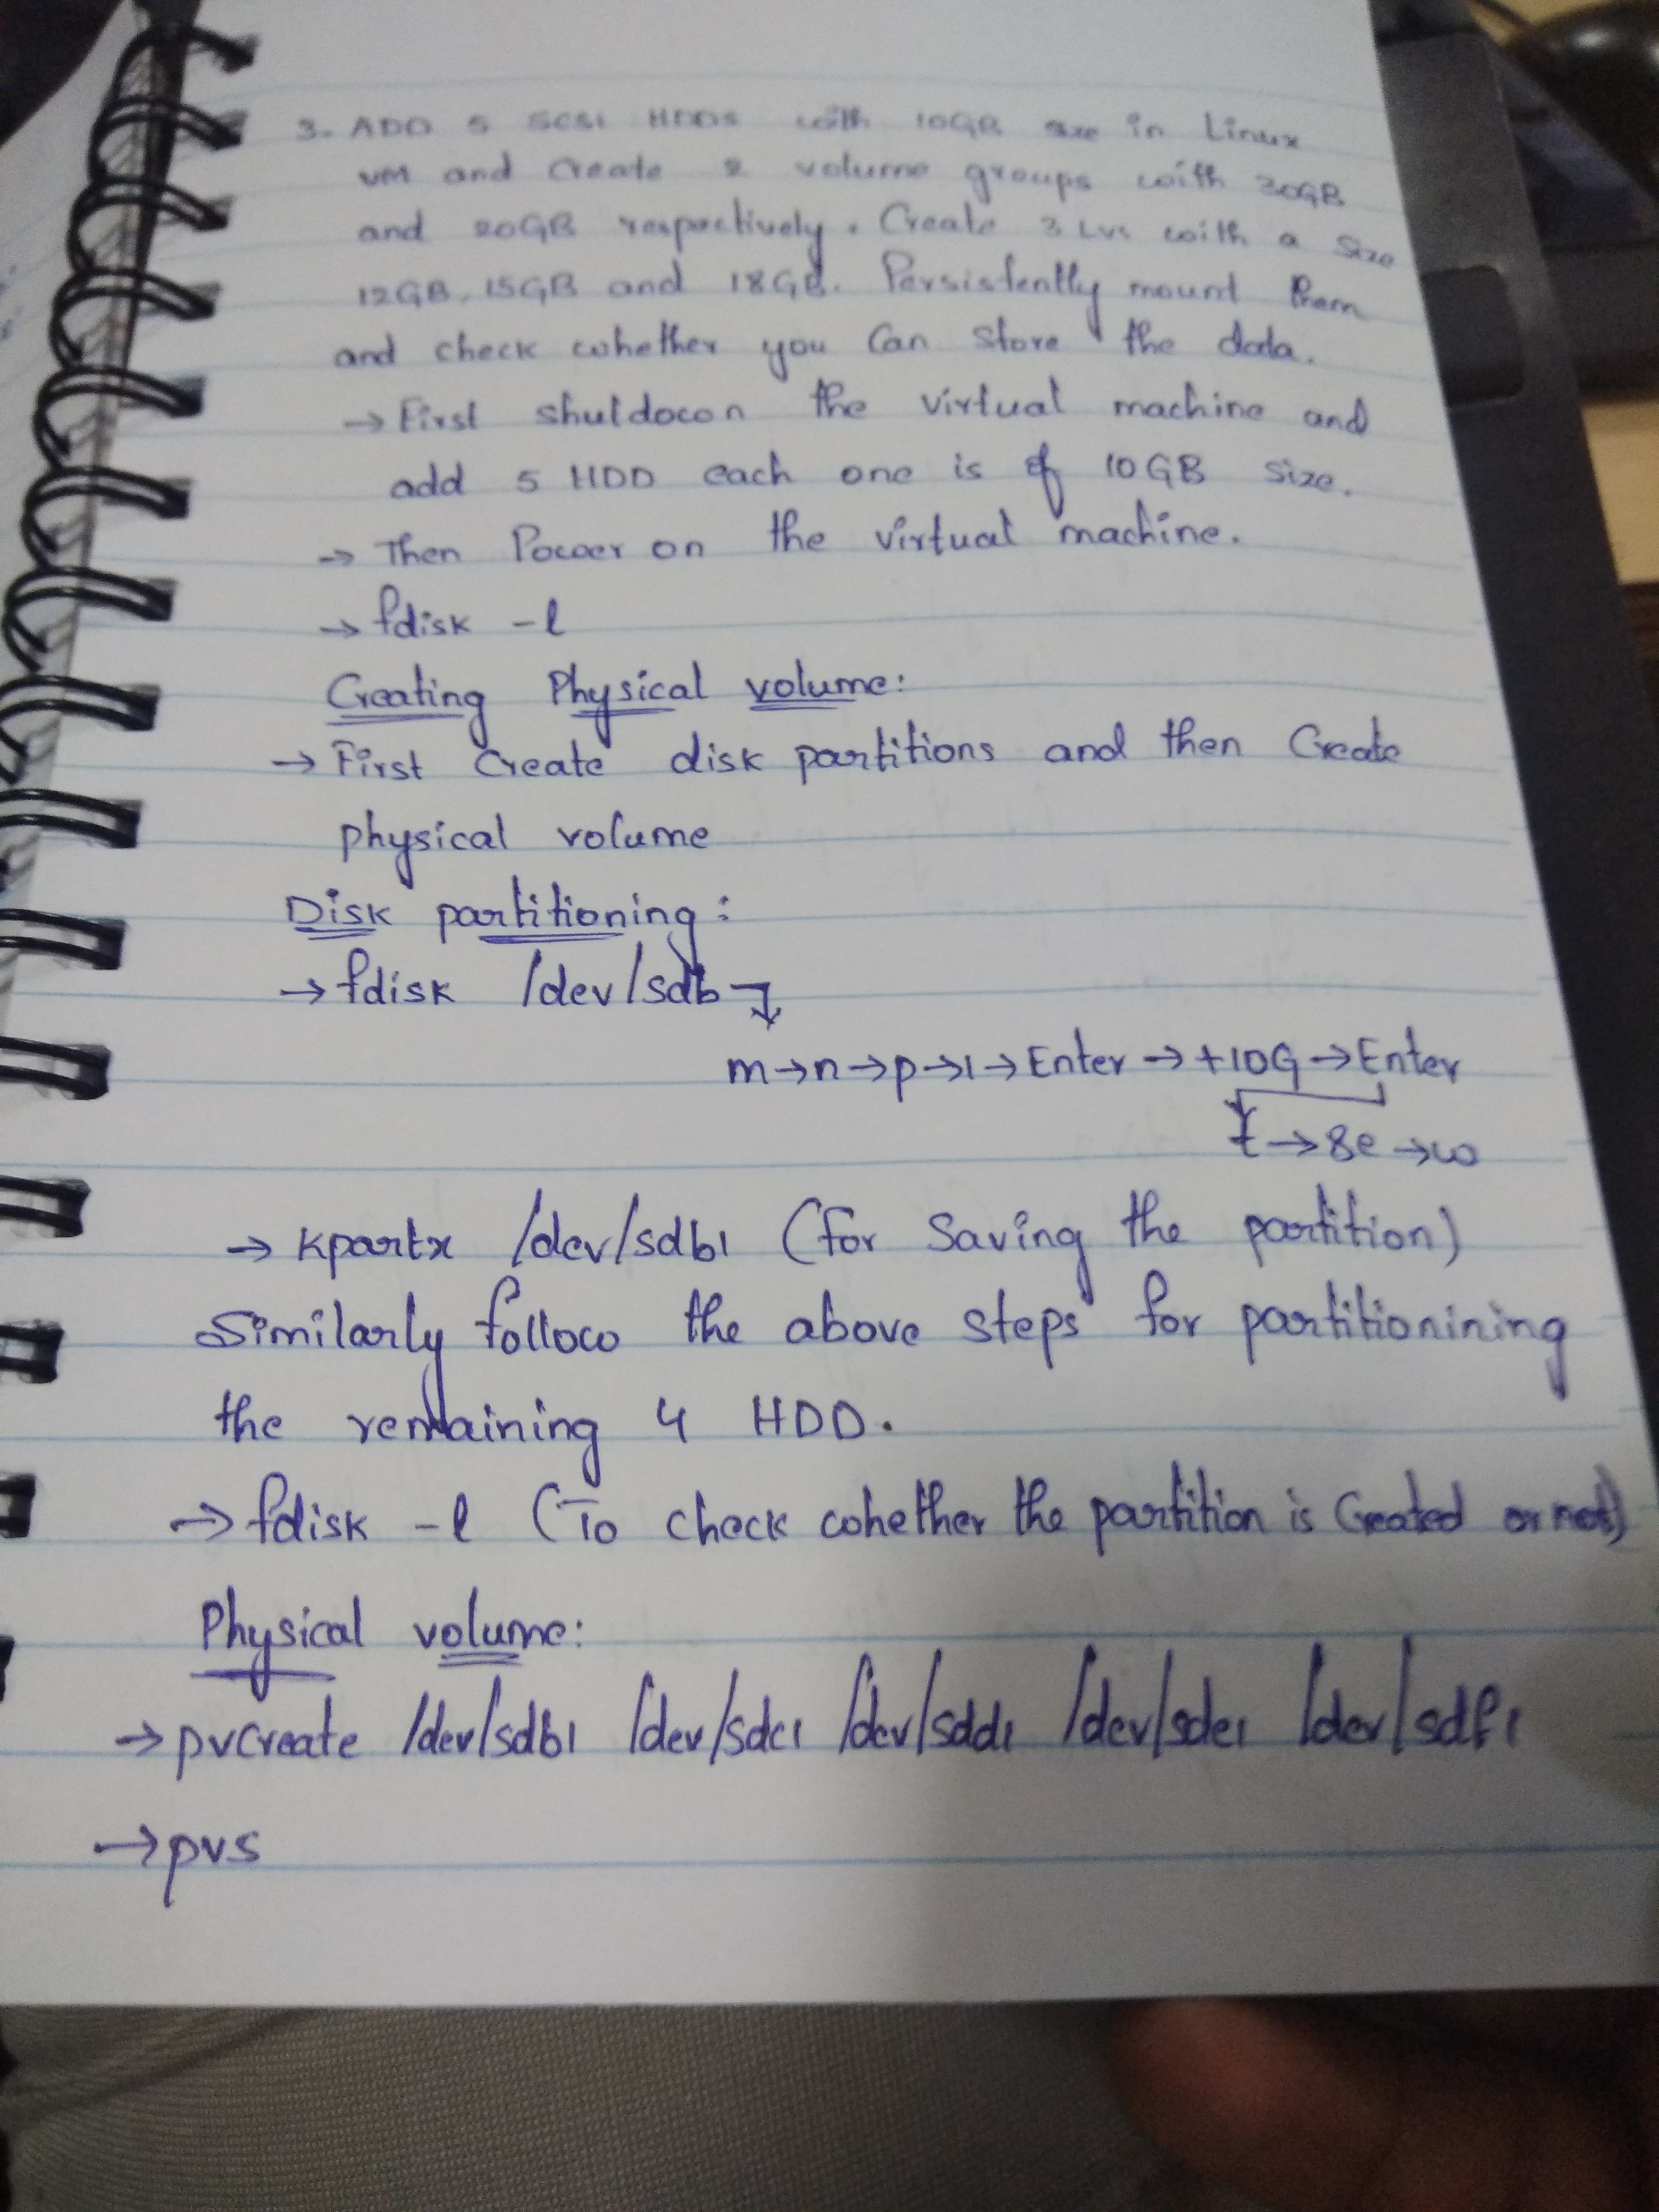 3. ADD 5 SCSI HDDS with 10GB size in Linux
VM and Create 2 volume groups with 30GB
and 20GB respectively. Create 3 LVs with a size
12GB, 15GB and 18GB. Persistently mount them
and check whether you Can Store the data.
→ First shutdown the virtual machine and
add 5 HDD each one is of 10GB size.
→ Then Power on the virtual machine.
→ fdisk -l
Creating Physical volume:
→ First Create disk partitions and then Create
physical volume
Disk partitioning:
→ fdisk /dev/sdb
m→n→p→1→Enter→+10G→Enter
t→8e→w
→ kpartx /dev/sdb1 (for Saving the partition)
Similarly follow the above steps for partitionining
the remaining 4 HDD.
→ fdisk -l (To check whether the partition is Created or not)
Physical volume:
→ pvcreate /dev/sdb1 /dev/sdc1 /dev/sdd1 /dev/sde1 /dev/sdf1
→ pvs